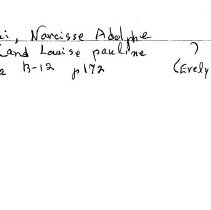 i, Narcisse Adolphe
(and Louise pauline )
e B-12 p172 (Evely